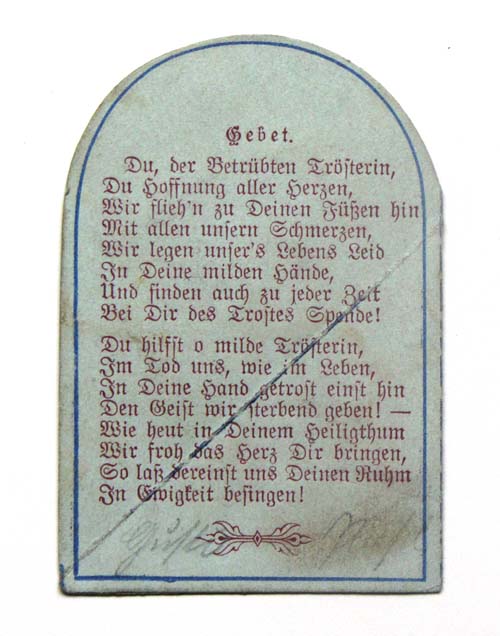 Gebet.
Du, der Betrübten Trösterin,
Du Hoffnung aller Herzen,
Wir flieh'n zu Deinen Füßen hin
Mit allen unsern Schmerzen,
Wir legen unser's Lebens Leid
In Deine milden Hände,
Und finden auch zu jeder Zeit
Bei Dir des Trostes Spende!
Du hilfst o milde Trösterin,
Im Tod uns, wie im Leben,
In Deine Hand getrost einst hin
Den Geist wir sterbend geben! —
Wie heut in Deinem Heiligthum
Wir froh das Herz Dir bringen,
So laß dereinst uns Deinen Ruhm
In Ewigkeit besingen!